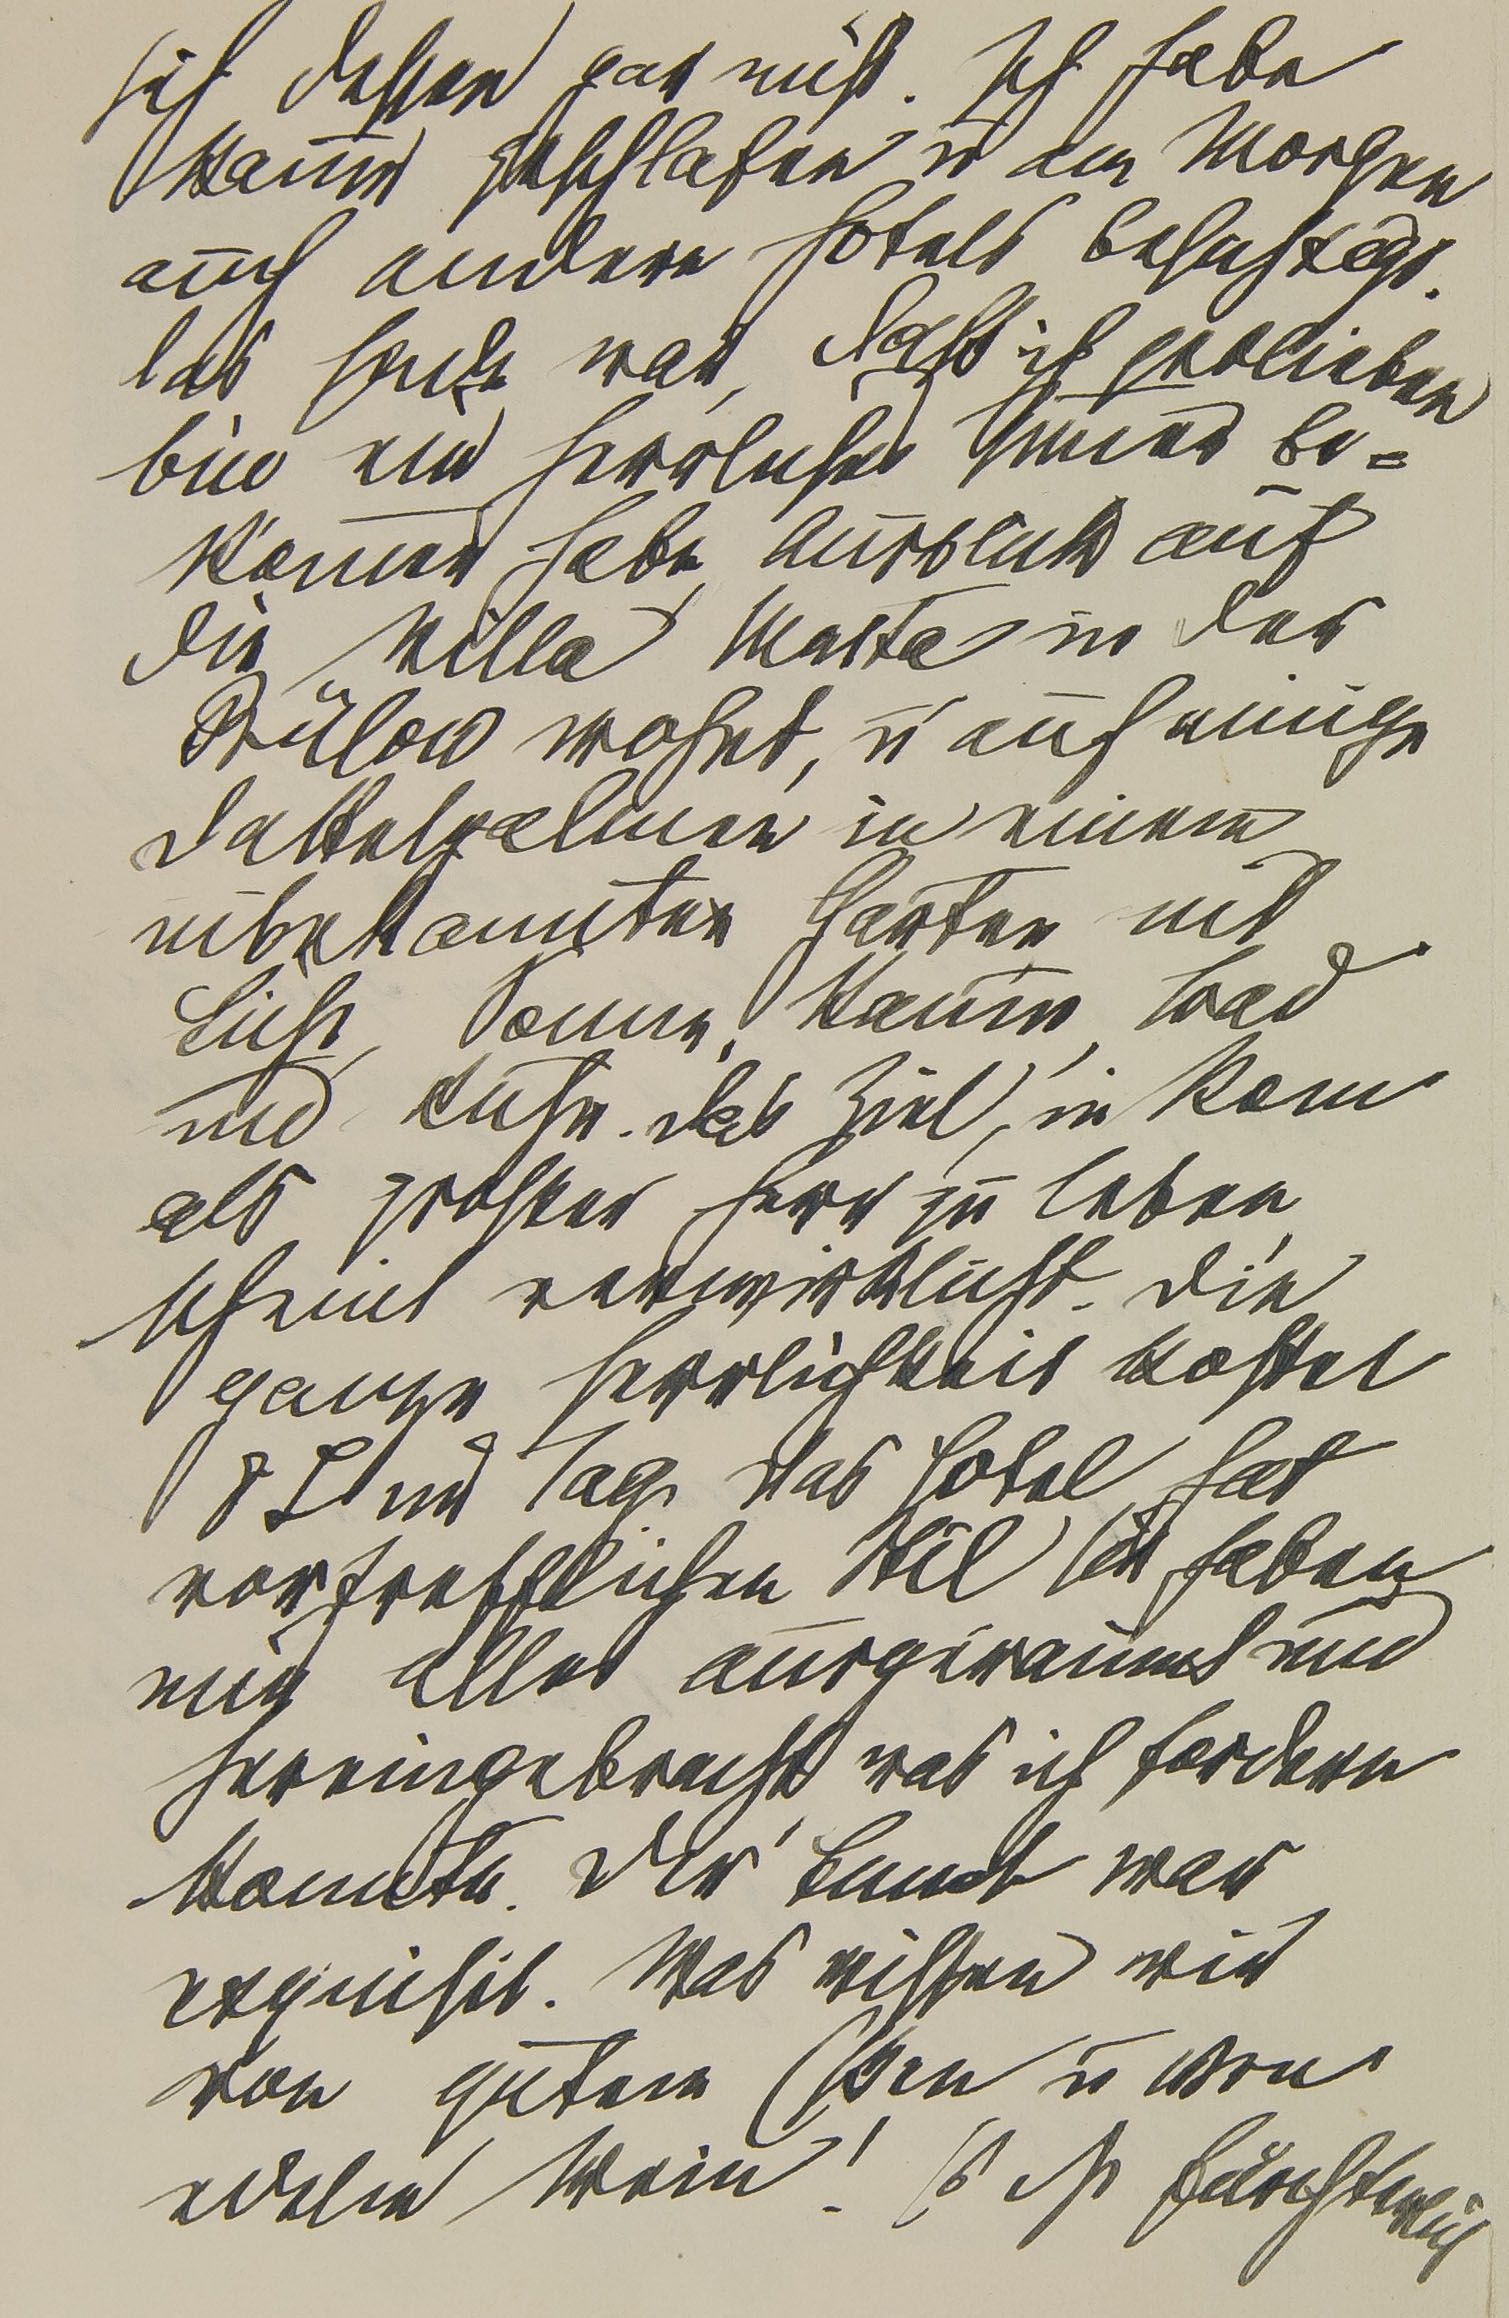 sich dessen gar nicht. Ich habe
kaum geschlafen u am Morgen
auch andere Hotels besichtigt.
das Ende war, dass ich geblieben
bin und herrliches Zimmer be=
kommen habe Ausblick auf
die Villa Malta in der
Bülow wohnt, u auf einige
Dattelpalmen in einem
unbekannten Garten mit
Licht, Sonne, Raum, Bad
und Ruhe. das Ziel, in Rom
als grosser Herr zu leben
scheint verwirklicht. die
ganze Herrlichkeit kostet
8 L im Tag das Hotel hat
vortrefflichen Stil sie haben
mir alles ausgeräumt und
hereingebracht was ich fordern
konnte. der Lunch war
exquisit. Was wissen wir
von gutem Essen u von
edlem Wein! Es ist fürchterlich